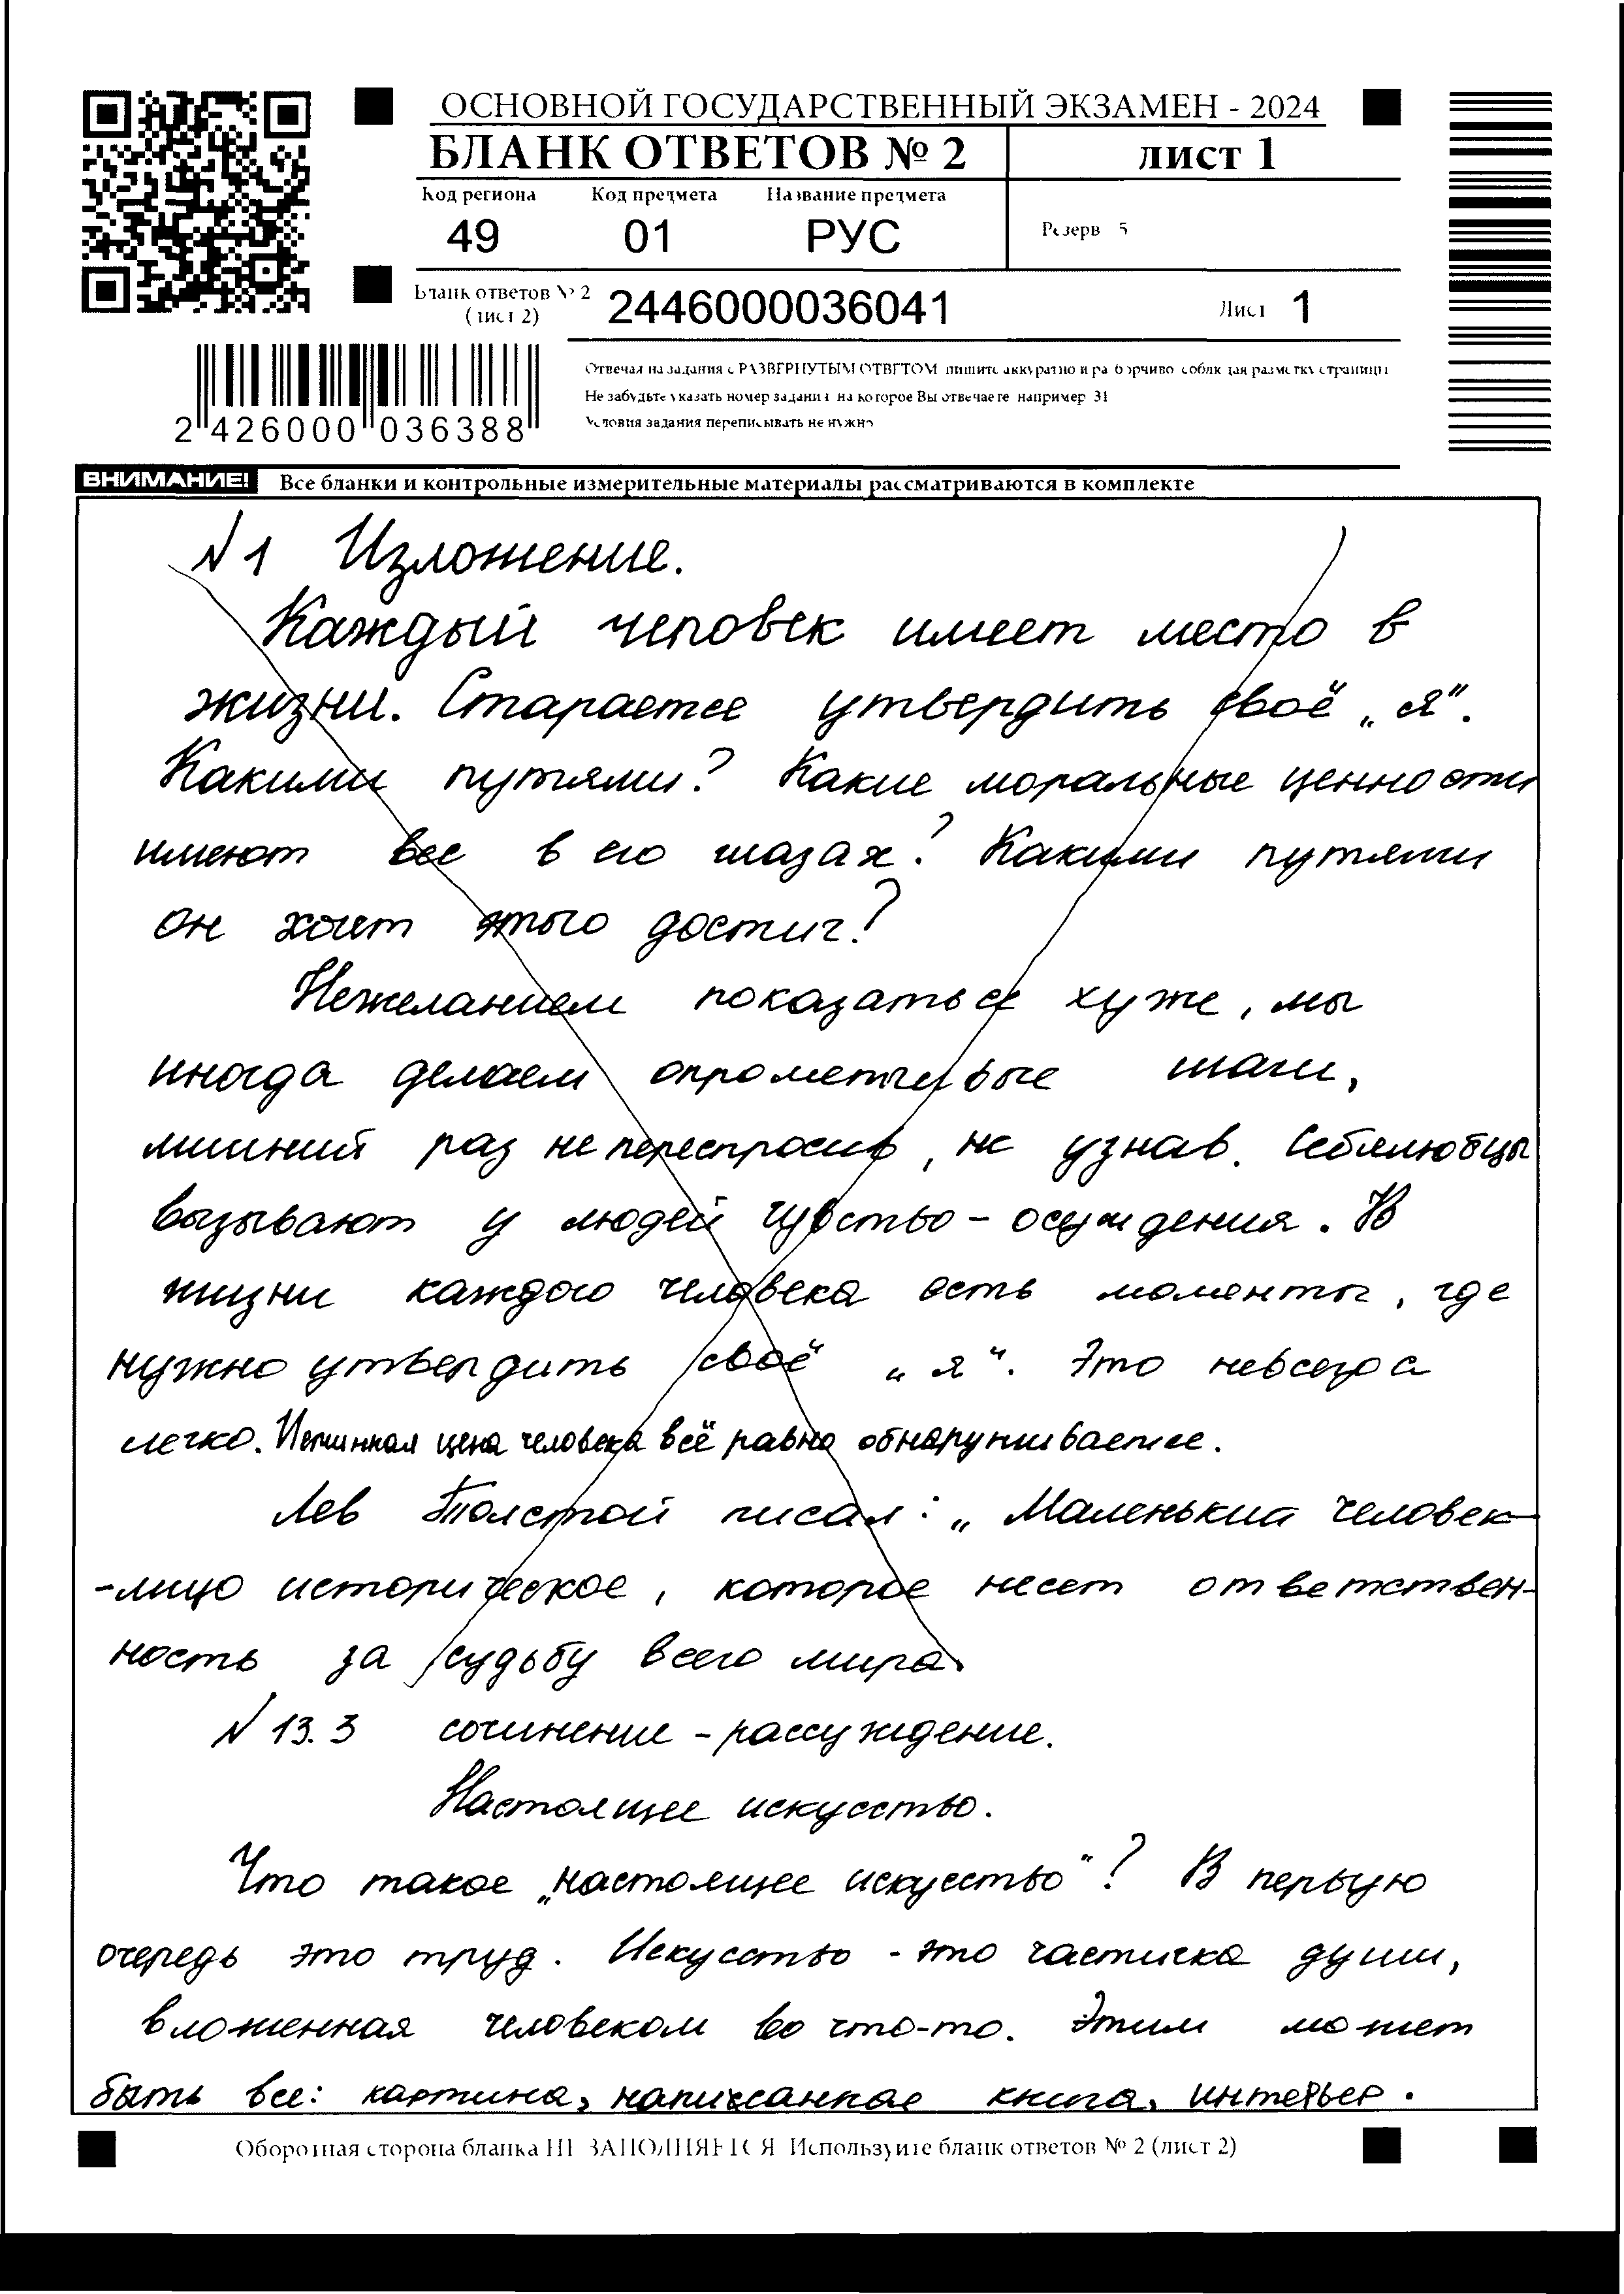 ОСНОВНОЙ ГОСУДАРСТВЕННЫЙ ЭКЗАМЕН - 2024
БЛАНК ОТВЕТОВ № 2
лист 1
Код региона Код предмета Название предмета
49 01 РУС
Резерв 5
Бланк ответов № 2
(лист 2)
2446000036041
Лист 1
2 426000 036388
Отвечая на задания с РАЗВЕРНУТЫМ ОТВЕТОМ пишите аккуратно и разборчиво соблюдая разметку страницы
Не забудьте указать номер задания на которое Вы отвечаете например 31
Условия задания переписывать не нужно
ВНИМАНИЕ! Все бланки и контрольные измерительные материалы рассматриваются в комплекте
N 1 Изложение.
Каждый человек имеет место в
жизни. Старается утвердить своё „я".
Какими путями? Какие моральные ценности
имеют все в его глазах? Какими путями
он хочет этого достиг?
Нежеланием показаться хуже, мы
иногда делаем опрометчивые шаги,
лишний раз не переспросив, не узнав. Себялюбцы
вызывают у людей чувство - осуждения. В
жизни каждого человека есть моменты, где
нужно утвердить своё „я". Это невсегда
легко. Истинная цена человека всё равно обнаруживается.
Лев Толстой писал: „Маленький человек-
-лицо историческое, которое несет ответствен-
ность за судьбу всего мира.
N 13.3 сочинение - рассуждение.
Настоящее искусство.
Что такое „настоящее искусство"? В первую
очередь это труд. Искусство - это частичка души,
вложенная человеком во что-то. Этим может
быть все: картина, написанная книга, интерьер.
Оборотная сторона бланка НЕ ЗАПОЛНЯЕТСЯ Используйте бланк ответов № 2 (лист 2)